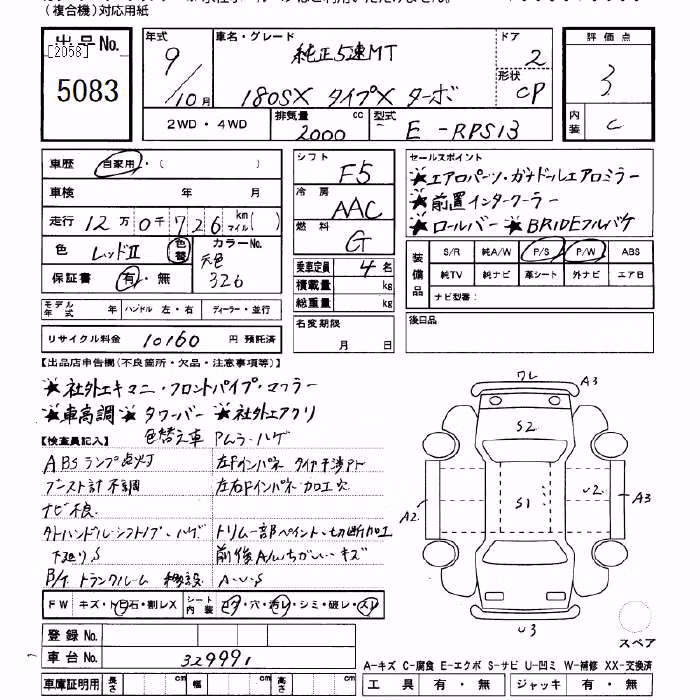 (複合機)対応用紙
出品No.
[2058]
5083
年式 9/10月
車名・グレード
純正5速MT
180SX タイプX ターボ
ドア 2
形状 CP
評価点
3
内装 C
2WD・4WD
排気量 2000 cc
型式 E-RPS13
車歴 自家用・(
車検 年 月
走行 12万0千726 km マイル( )
色 レッドII 色替
カラーNo. 元色 326
保証書 有・無
モデル年式 年 ハンドル 左・右 ディーラー・並行
リサイクル料金 10160 円 預託済
シフト F5
冷房 AAC
燃料 G
乗車定員 4名
積載量 kg
総重量 kg
名変期限
月 日
セールスポイント
★エアロパーツ・ガナドールエアロミラー
★前置インタークーラー
★ロールバー ★BRIDEフルバケ
装備品
S/R 純A/W P/S P/W ABS
純TV 純ナビ 革シート 外ナビ エアB
ナビ型番:
後日品
【出品店申告欄(不良箇所・欠品・注意事項等)】
★社外エキマニ・フロントパイプ・マフラー
★車高調 ★タワーバー ★社外エアクリ
【検査員記入】
色替え車 Pムラ・ハゲ
ABSランプ点灯 左Fインパネ タイヤ干渉アト
ブースト計不調 左右Fインパネ加工穴
ナビ不良
タトハンドル・シフトノブ・ハゲ トリム一部ペイント、切断加工
下廻りS 前後A/Wちがい・キズ
B/T トランクルーム 移設 A・U・S
ワレ A3
S2
S1
U2
A2
A3
U3
スペア
FW キズ・トビ石・割レX シート内装 コゲ・穴・汚レ・シミ・破レ・スレ
登録No.
車台No. 329991
車庫証明用 長さ cm 幅 cm 高さ cm
A-キズ C-腐食 E-エクボ S-サビ U-凹ミ W-補修 XX-交換済
工具 有・無 ジャッキ 有・無